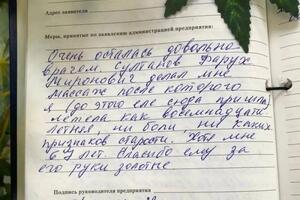 Адрес заявителя
Меры, принятые по заявлению администрацией предприятия:
Очень осталась довольна
врачем. Султанов Фарух
Миронович делал мне
массаж после которого
я (до этого еле сюда пришла)
летела как восемнадцати
летняя, ни боли ни каких
признаков старости. Хотя мне
64 лет. Спасибо ему за
его руки золотые
Подпись руководителя предприятия